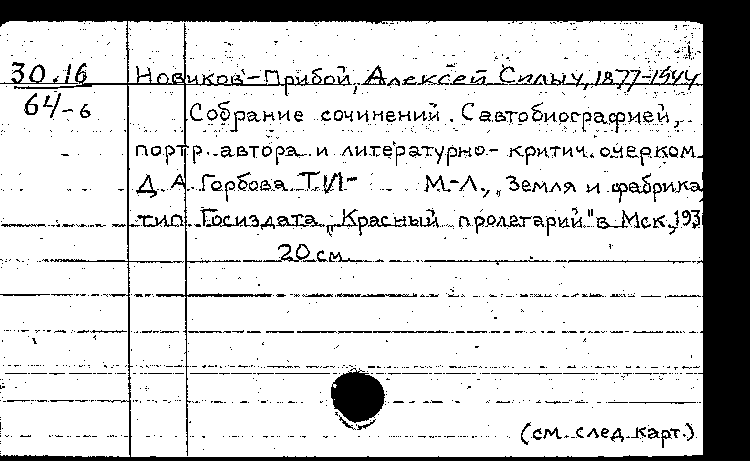 30.16
64-6
Новиков-Прибой, Алексей Силыч, 1877-1944
Собрание сочинений. С автобиографией,
портр. автора и литературно-критич. очерком
Д. А. Горбова Т. VI- М.-Л., "Земля и фабрика
тип. Госиздата "Красный пролетарий" в Мск.,
20 см.
(см. след. карт.)